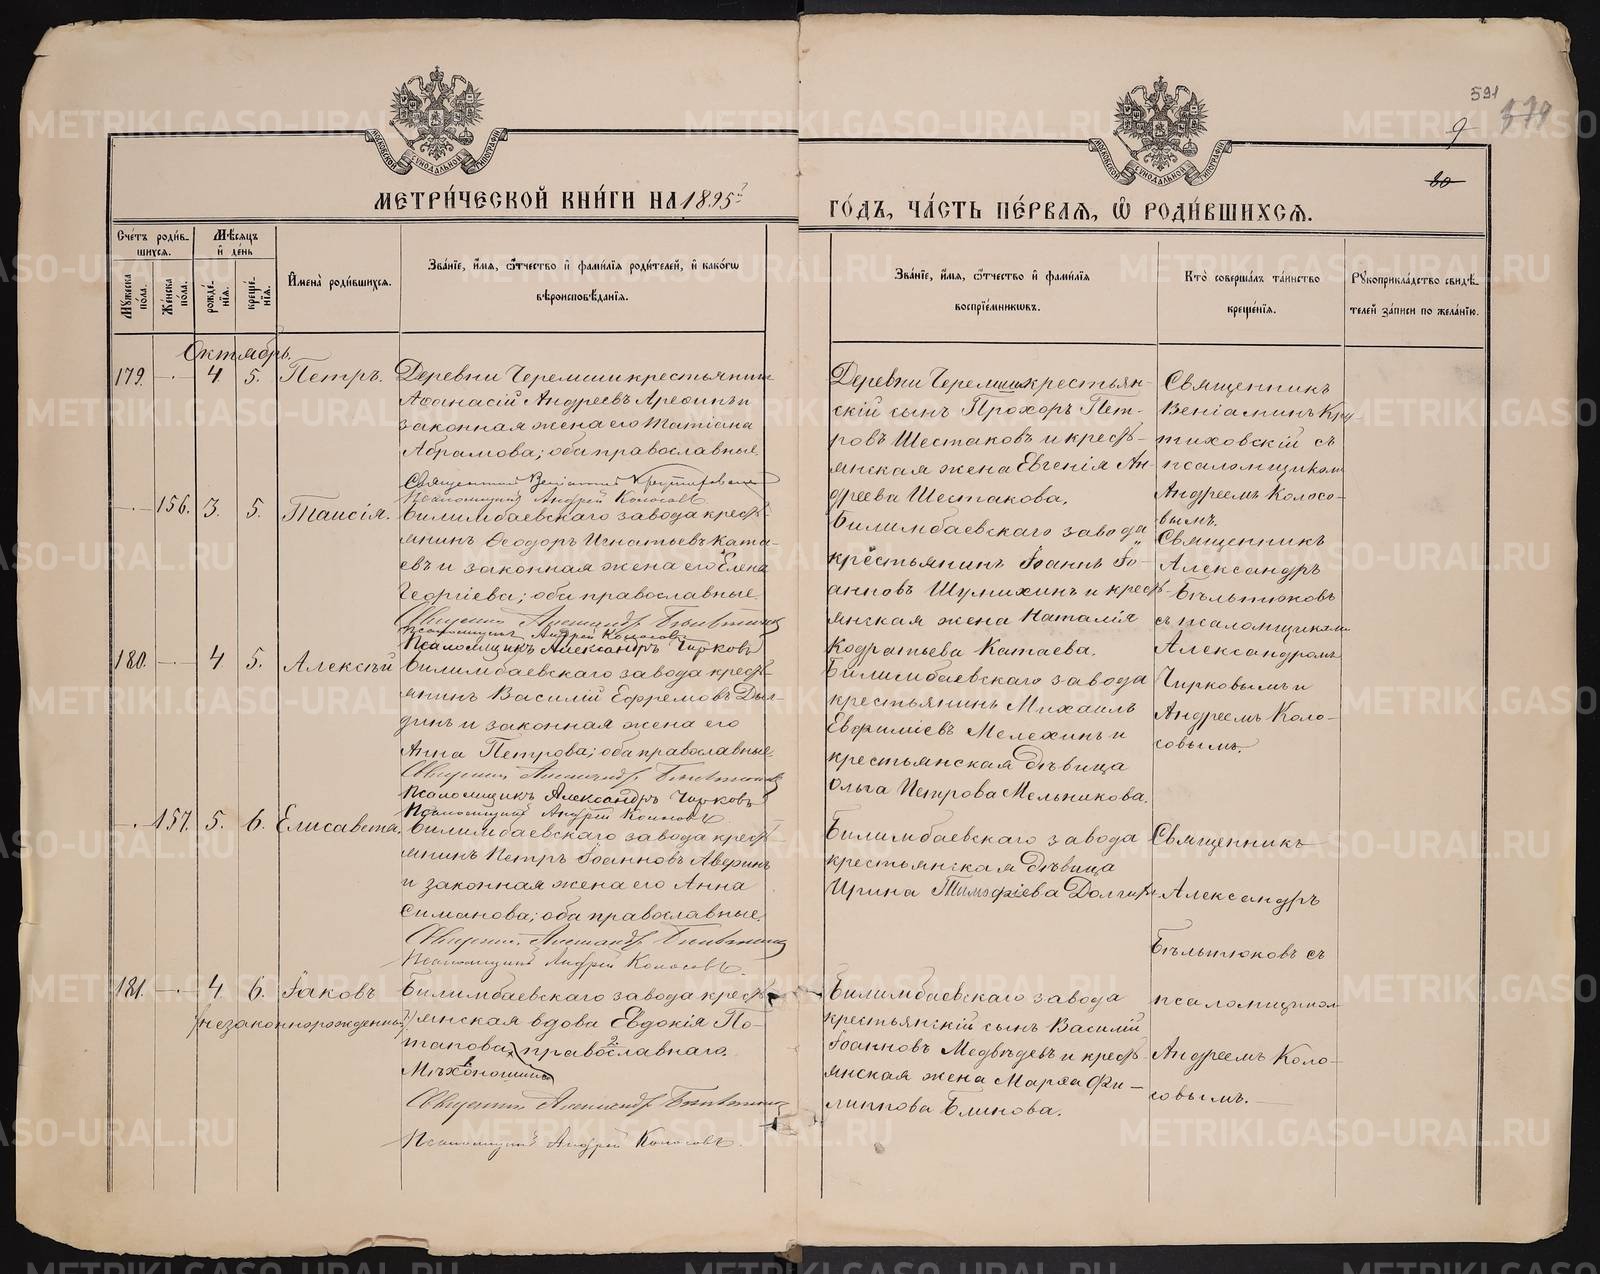 591
379
9
80
МЕТРИ́ЧЕСКОЙ КНИ́ГИ НА 1895 г.
ГО́ДЪ, ЧА́СТЬ ПЕ́РВАЯ, Ѽ РОДИ́ВШИХСЯ.
Сче́тъ роди́в-
шихся.
Мѣ́сяцъ
и҆ де́нь
Му́жеска по́ла.
Же́нска по́ла.
рожде́-
нїя.
креще́-
нїя.
И҆мена̀ роди́вшихся.
Зва́нїе, и҆́мя, ѻ҆́тчество и҆ фами́лїя роди́телей, и҆ како́гѡ
вѣроисповѣ́данїя.
Зва́нїе, и҆́мя, ѻ҆́тчество и҆ фами́лїя
воспрїе́мникѡвъ.
Кто̀ соверша́лъ та́инство
креще́нїя.
Рꙋкоприкла́дство свидѣ́-
телей за́писи по жела́нїю.
Октябрь.
179. — 4. 5. Петръ.
Деревни Черемши крестьянинъ
Аѳанасій Андреевъ Арефинъ и
законная жена его Татіана
Абрамова; оба православные.
Священникъ Веніаминъ Крутиховскій
Псаломщикъ Андрей Колосовъ
Деревни Черемши крестьян-
скій сынъ Прохоръ Пет-
ровъ Шестаковъ и кресть-
янская жена Евгенія Ан-
дреева Шестакова.
Священникъ
Веніаминъ Кру-
тиховскій съ
псаломщикомъ
Андреемъ Колосо-
вымъ.
— 156. 3. 5. Таисія.
Билимбаевскаго завода кресть-
янинъ Ѳеодоръ Игнатьевъ Ката-
евъ и законная жена его Елена
Георгіева; оба православные.
Священникъ Александръ Бѣльтюковъ
Псаломщикъ Андрей Колосовъ
Псаломщикъ Александръ Чирковъ
Билимбаевскаго завода
крестьянинъ Іоаннъ Іо-
анновъ Шумихинъ и кресть-
янская жена Наталія
Кодратьева Катаева.
Священникъ
Александръ
Бѣльтюковъ
съ псаломщиками
Александромъ
Чирковымъ и
Андреемъ Коло-
совымъ.
180. — 4 5. Алексѣй
Билимбаевскаго завода кресть-
янинъ Василій Ефремовъ Дыл-
динъ и законная жена его
Анна Петрова; оба православные.
Священникъ Александръ Бѣльтюковъ
Псаломщикъ Александръ Чирковъ
Псаломщикъ Андрей Колосовъ
Билимбаевскаго завода
крестьянинъ Михаилъ
Евфиміевъ Мелехинъ и
крестьянская дѣвица
Ольга Петрова Мельникова.
— 157. 5. 6. Елисавета.
Билимбаевскаго завода кресть-
янинъ Петръ Іоанновъ Аверинъ
и законная жена его Анна
Симанова; оба православные.
Священникъ Александръ Бѣльтюковъ
Псаломщикъ Андрей Колосовъ.
Билимбаевскаго завода
крестьянская дѣвица
Ирина Тимофіева
Священникъ
Александръ
Бѣльтюковъ съ
псаломщикомъ
Андреемъ Коло-
совымъ.
181. — 4. 6. Іаковъ
(незаконнорожденный)
Билимбаевскаго завода кресть-
янская вдова Евдокія По-
тапова православнаго.
Мѣхоношина
Священникъ Александръ Бѣльтюковъ
Псаломщикъ Андрей Колосовъ.
Билимбаевскаго завода
крестьянскій сынъ Василій
Іоанновъ Медвѣдевъ и кресть-
янская жена Марѳа Фи-
липпова Блинова.
METRIKI.GASO-URAL.RU